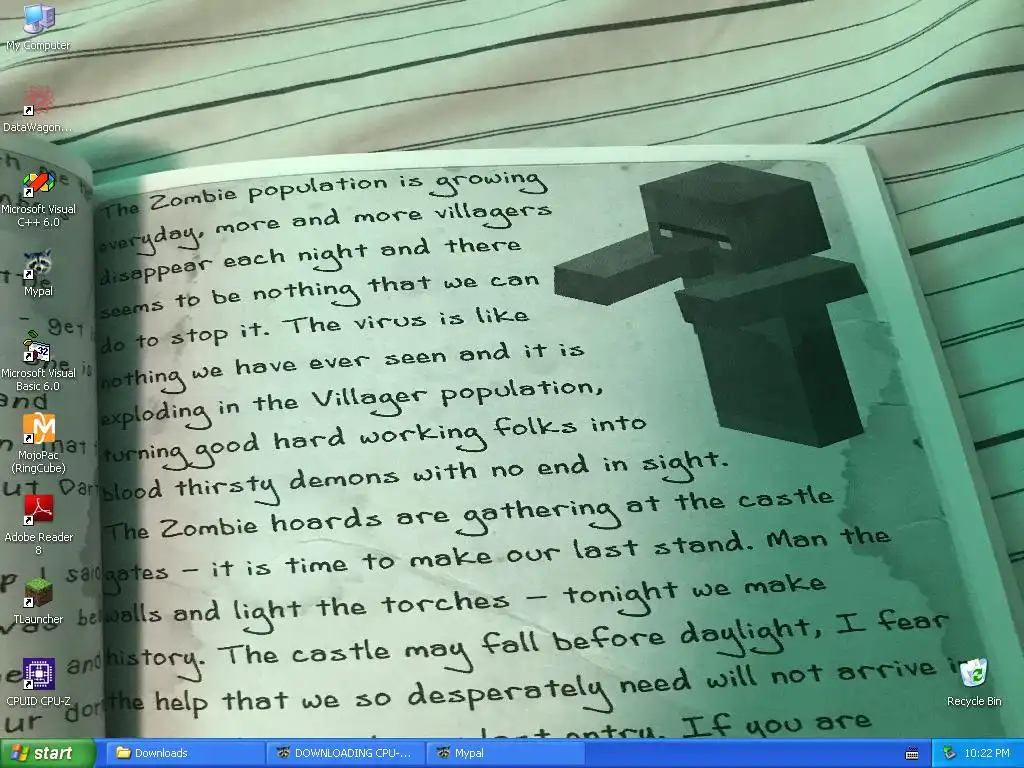 My Computer
DataWagon...
Microsoft Visual
C++ 6.0
Mypal
Microsoft Visual
Basic 6.0
MojoPac
(RingCube)
Adobe Reader
8
TLauncher
CPUID CPU-Z
Recycle Bin
The Zombie population is growing
everyday, more and more villagers
disappear each night and there
seems to be nothing that we can
do to stop it. The virus is like
nothing we have ever seen and it is
exploding in the Villager population,
turning good hard working folks into
blood thirsty demons with no end in sight.
The Zombie hoards are gathering at the castle
gates – it is time to make our last stand. Man the
walls and light the torches – tonight we make
history. The castle may fall before daylight, I fear
the help that we so desperately need will not arrive
entry. If you are
start
Downloads
DOWNLOADING CPU-...
Mypal
10:22 PM